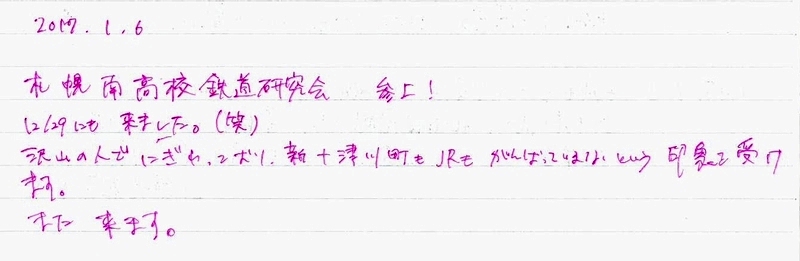 2017.1.6
札幌南高校鉄道研究会 参上!
12/29にも来ました。(笑)
沢山の人でにぎわっており、新十津川町もJRもがんばっているなという印象を受け
ます。
また来ます。